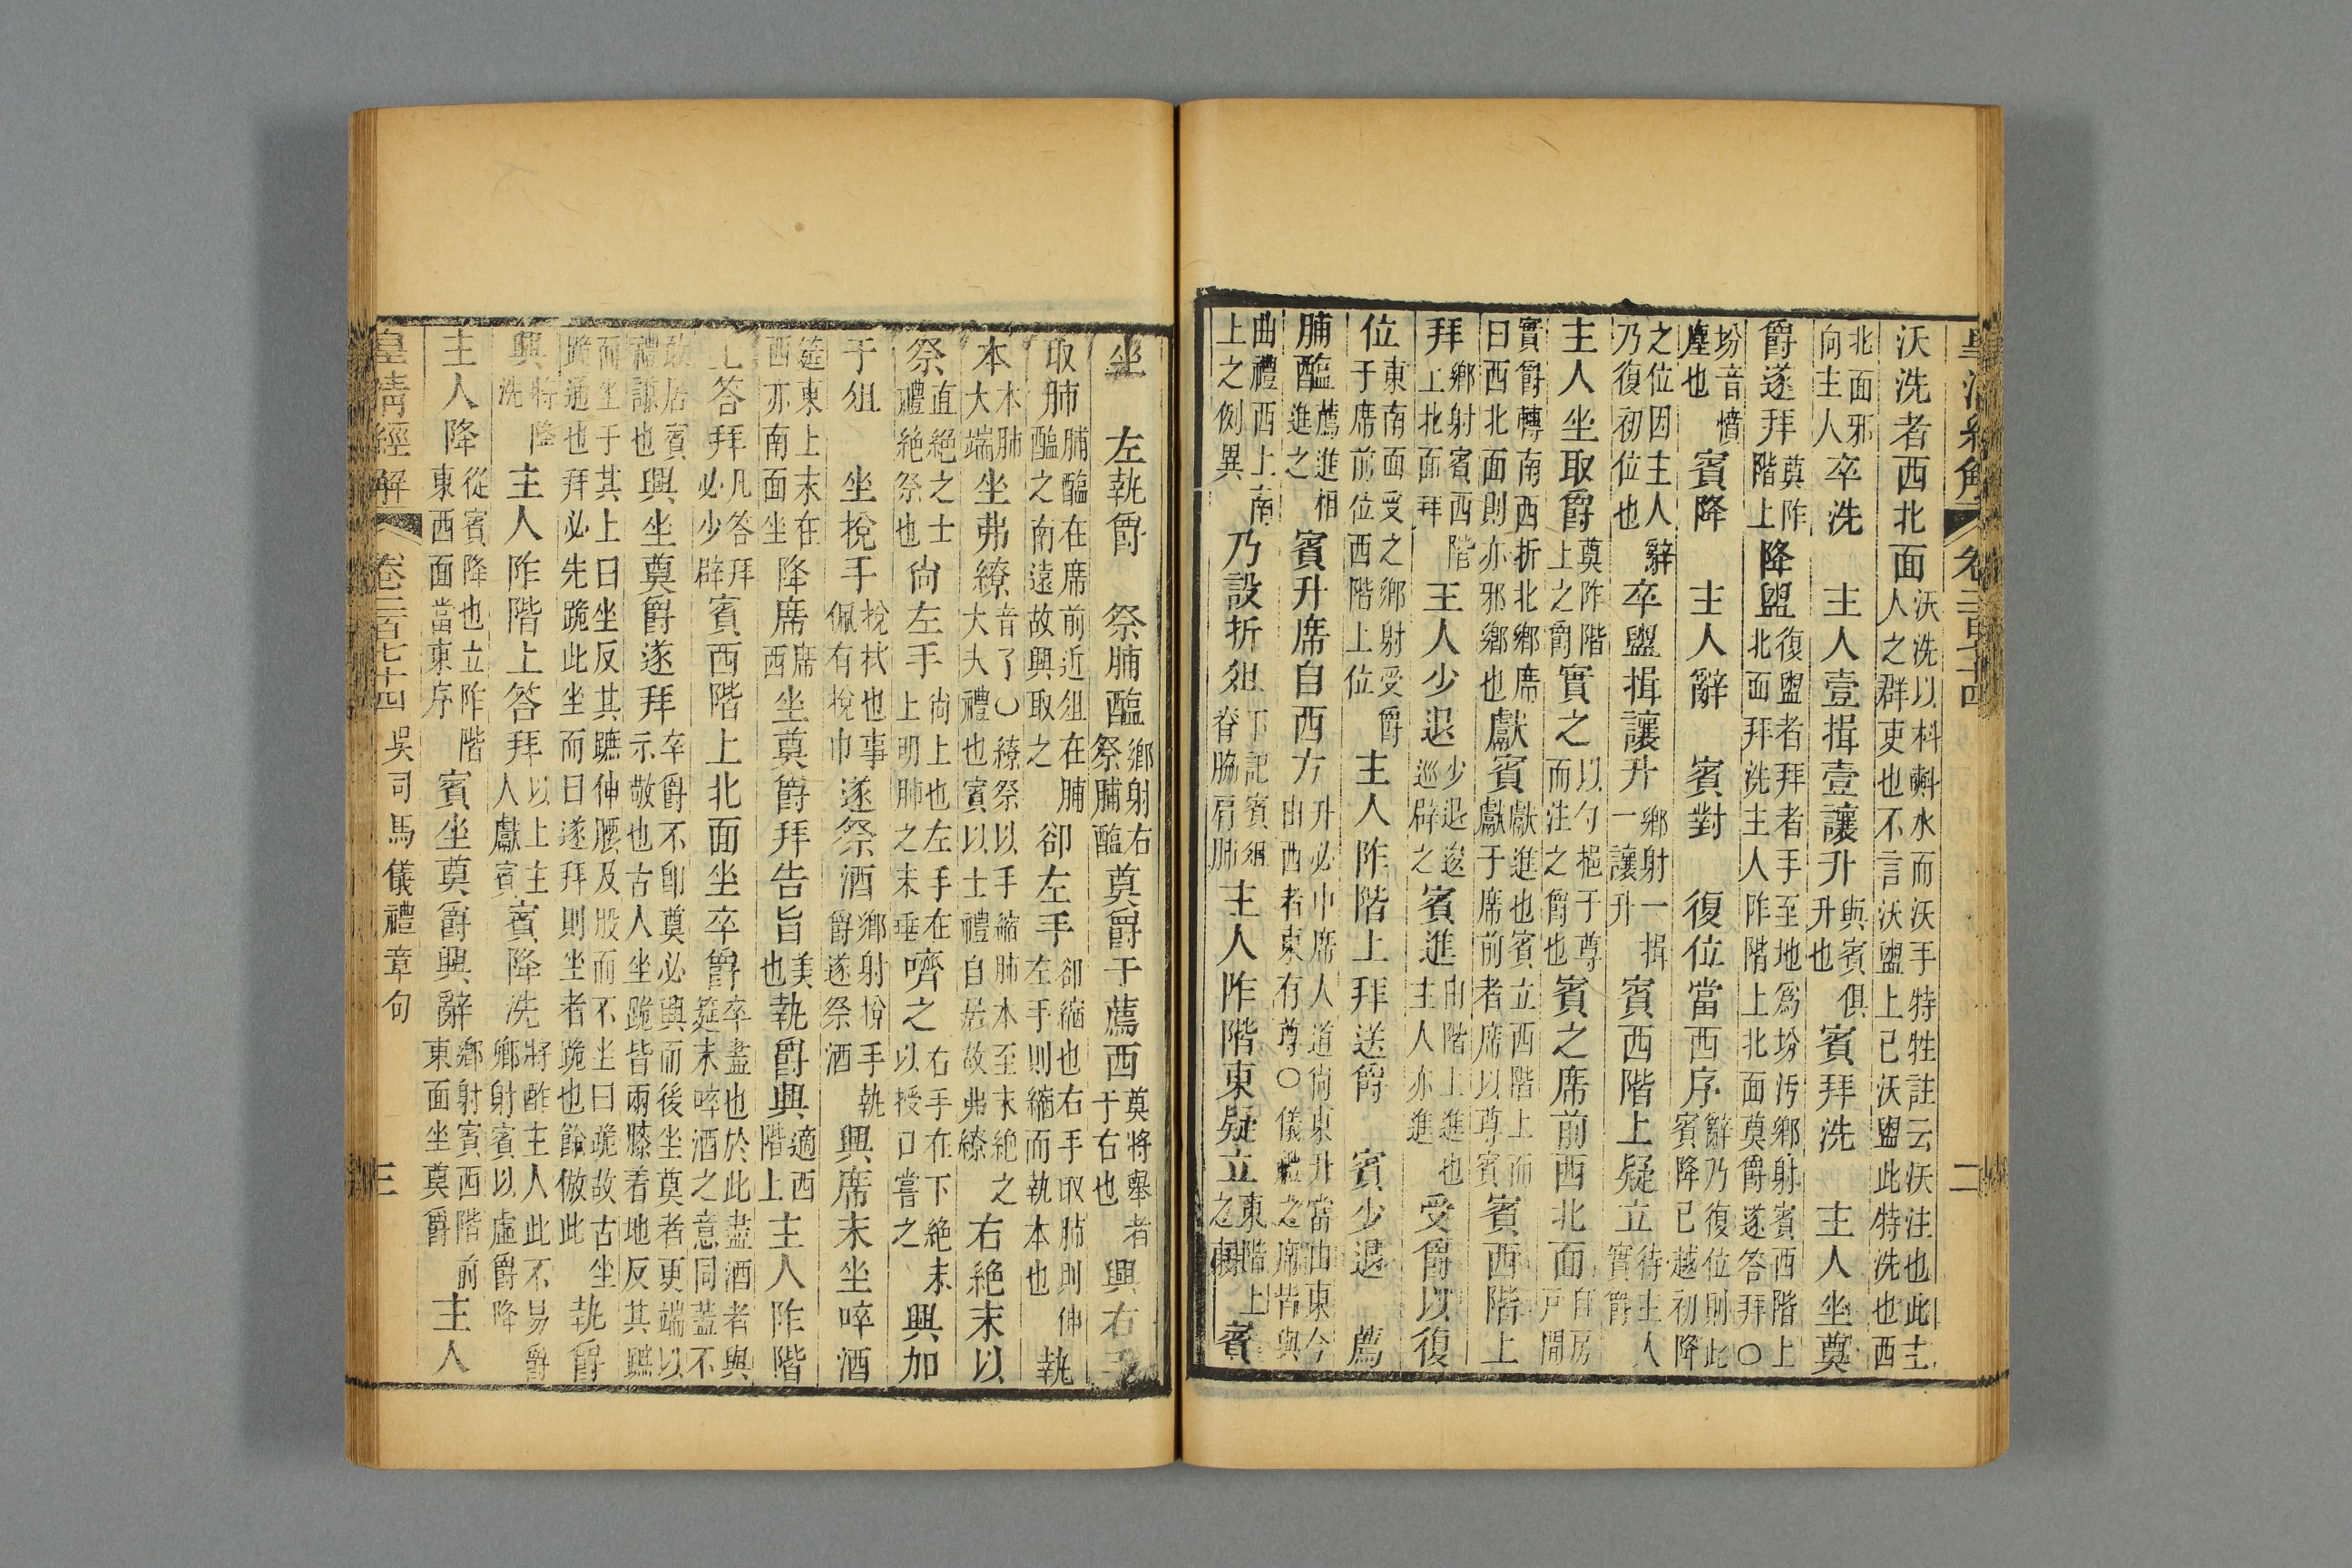 皇清經解 卷二百七十四 二
沃洗者西北面沃洗以枓㪺水而沃手特牲註云沃注也此主人之群吏也不言沃盥上已沃盥此特洗也西
北面邪向主人卒洗 主人壹揖壹讓升與賓俱升也賓拜洗 主人坐奠
爵遂拜奠阼階上降盥復盥者拜者手至地為坋汚鄉射賓西階上北面拜洗主人阼階上北面奠爵遂答拜○
坋音憤塵也 賓降 主人辭 賓對 復位當西序辭乃復位則此賓降已越初降
之位因主人辭乃復初位也卒盥揖讓升鄉射一揖一讓升賓西階上疑立待主人實爵
主人坐取爵奠阼階上之爵實之以勺挹于尊而注之爵也賓之席前西北面自房戸間
實爵轉南西折北鄉席曰西北面則亦邪鄉也獻賓獻進也賓立西階上而獻于席前者席以尊賓賓西階上
拜鄉射賓西階上北面拜主人少退少退逡巡辟之賓進由階上進也主人亦進受爵以復
位東南面受之鄉射受爵于席前位西階上位主人阼階上拜送爵 賓少退 薦
脯醢薦進相進之賓升席自西方升必中席人道尚東升當由東今由西者東有尊○儀禮之席皆與
曲禮西上南上之例異乃設折俎下記賓俎脊脇肩肺主人阼階東疑立東階上之東賓
坐 左執爵 祭脯醢鄉射右祭脯醢奠爵于薦西奠將舉者于右也興右手
取肺脯醢在席前近俎在脯醢之南遠故興取之卻左手卻緧也右手取肺則伸左手則緧而執本也執
本本肺大端坐弗繚音了○繚祭以手縮肺本至末絶之大夫禮也賓以士禮自居故弗繚右絶末以
祭直絶之士禮絶祭也尙左手尙上也左手在上明肺之末垂嚌之右手在下絶末以授口嘗之興加
于俎 坐挩手挩拭也事佩有挩巾遂祭酒鄉射挩手執爵遂祭酒興席末坐啐酒
筵東上末在西亦南面坐降席席西坐奠爵拜告旨美也執爵興適西階上主人阼階
上答拜凡答拜必少辟賓西階上北面坐卒爵卒盡也於此盡酒者與筵末啐酒之意同蓋不
敢居賓禮謙也興坐奠爵遂拜卒爵不卽奠必興而後坐奠者更端以示敬也古人坐跪皆兩膝着地反其蹠
而坐于其上曰坐反其蹠伸腰及股而不坐曰跪故古坐跪通也拜必先跪此坐而曰遂拜則坐者跪也餘倣此執爵
興將降洗主人阼階上答拜以上主人獻賓賓降洗將酢主人此不易爵鄉射賓以虛爵降
主人降從賓降也立阼階東西面當東序賓坐奠爵興辭鄉射賓西階前東面坐奠爵主人
皇清經解 卷二百七十四 吳司馬儀禮章句 三